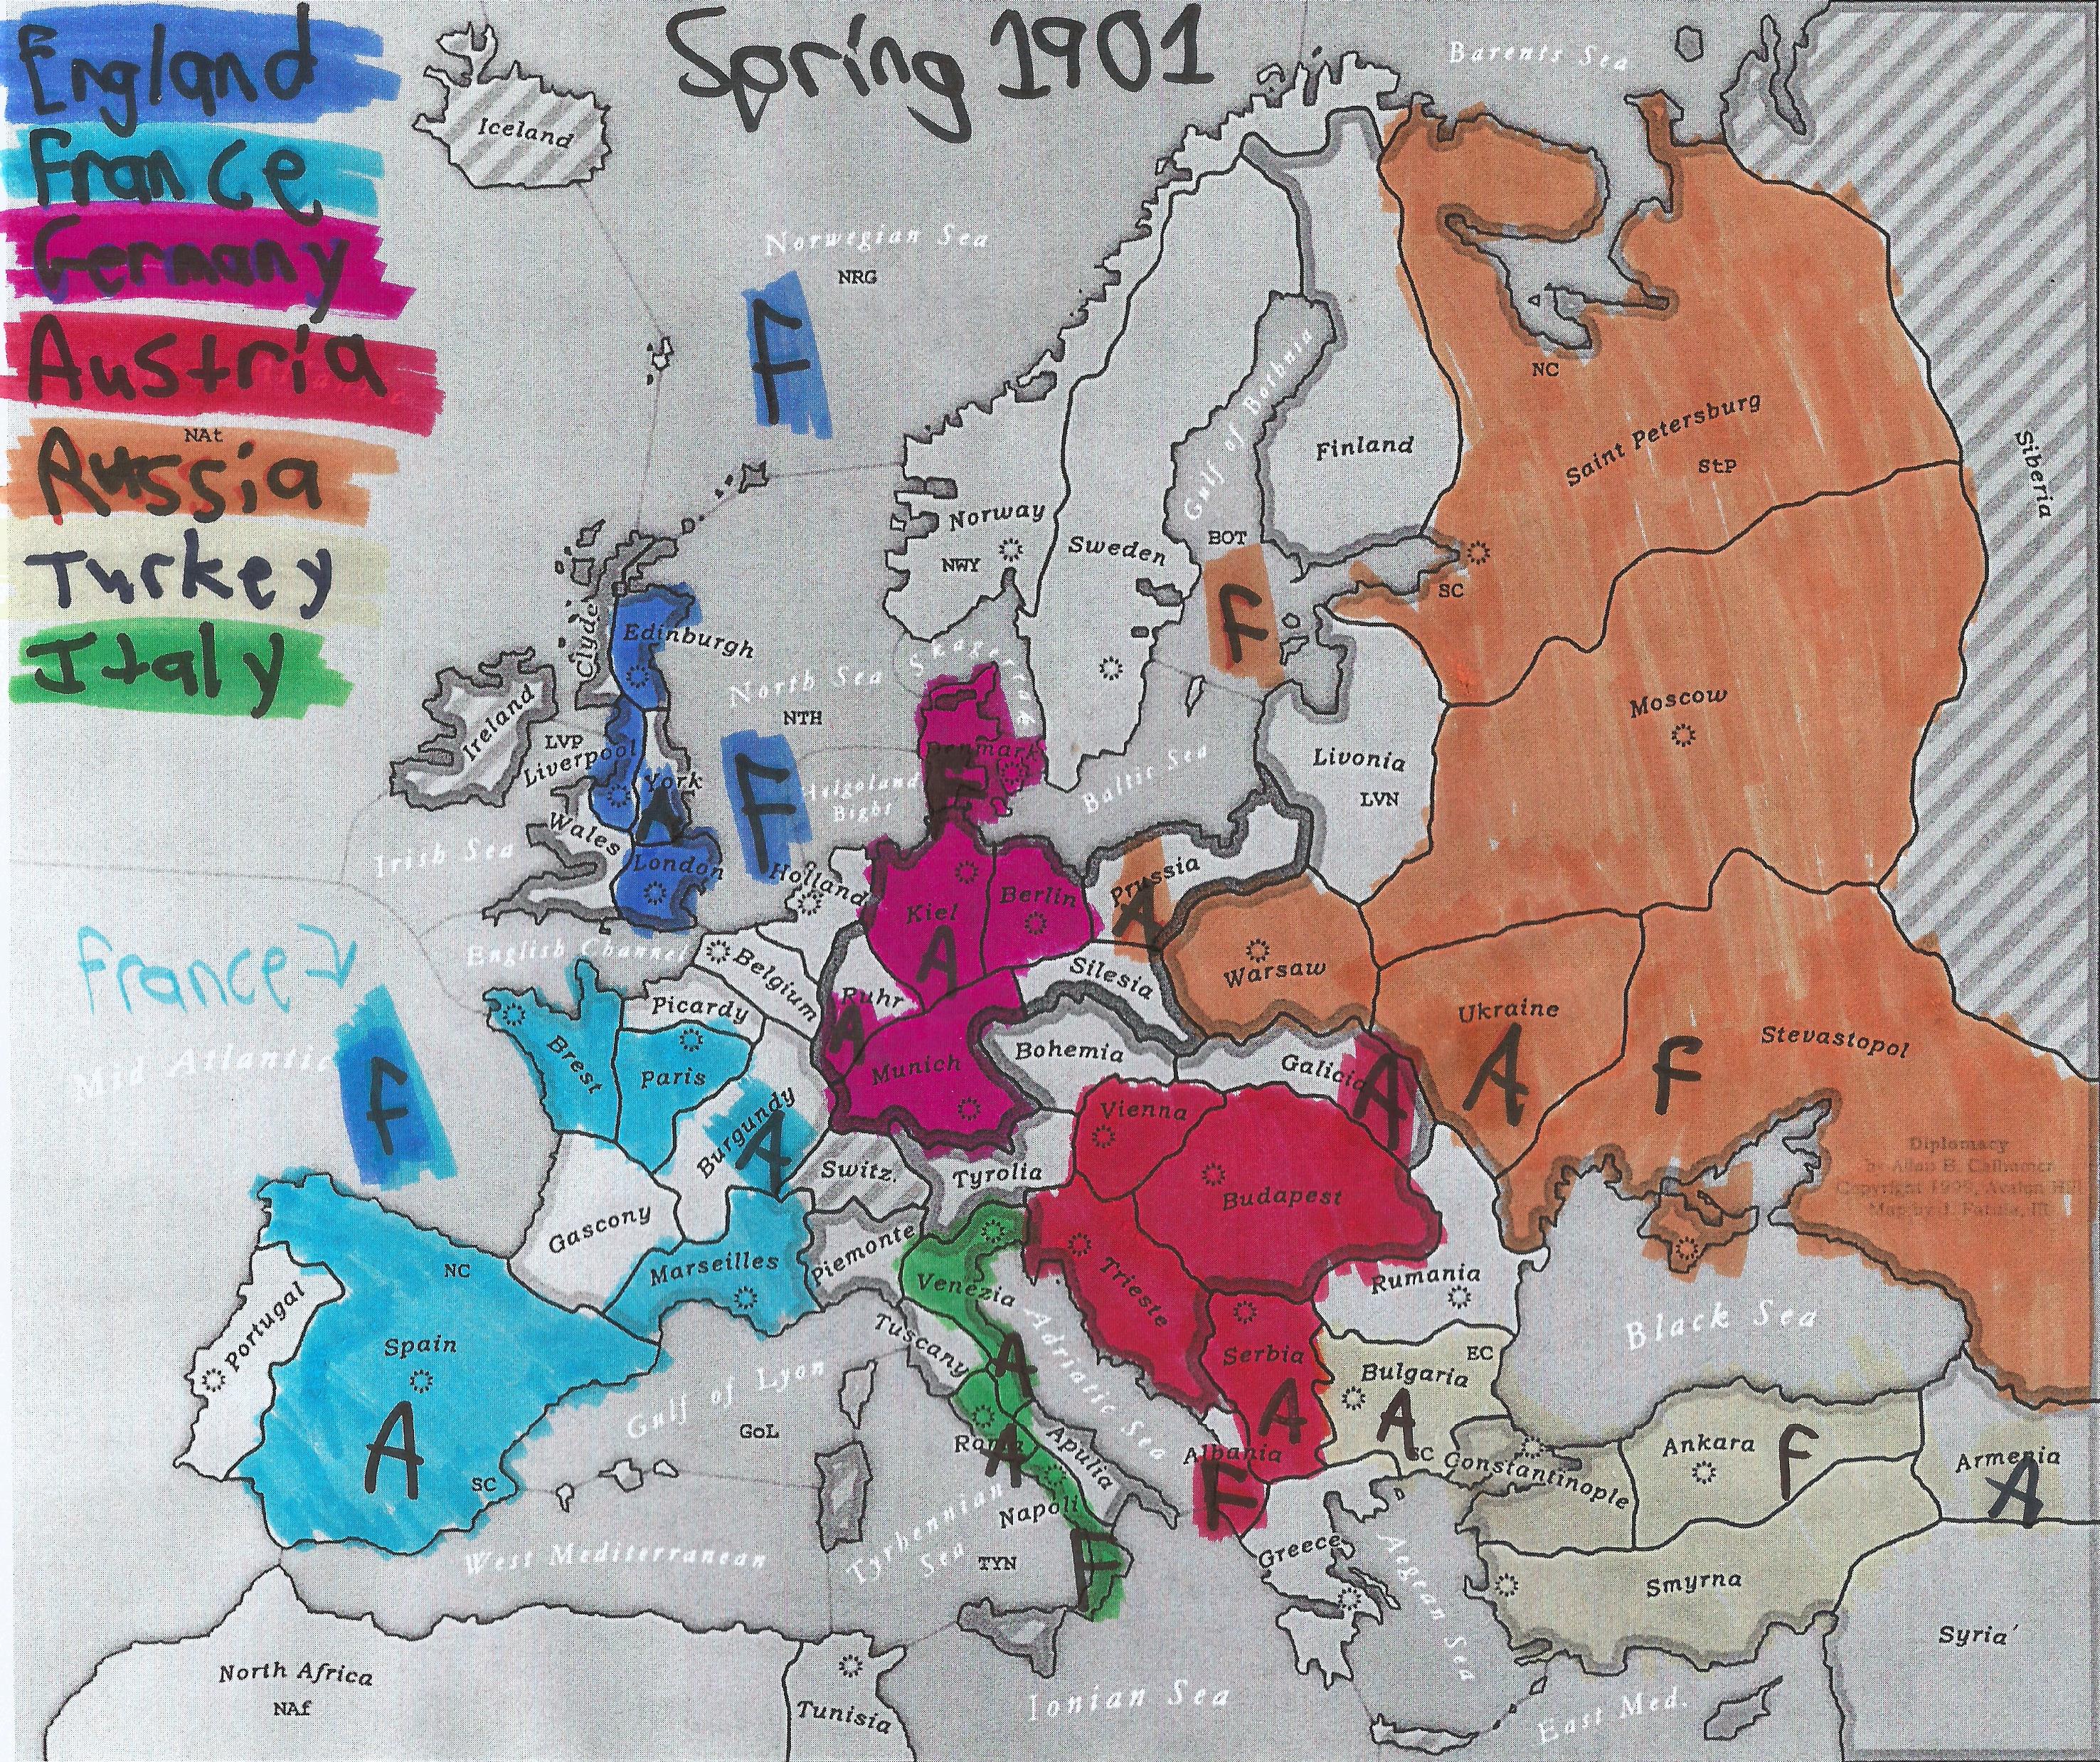 Spring 1901
England
France
Germany
Austria
Russia
Turkey
Italy
NAt
Iceland
Barents Sea
Norwegian Sea
NRG
F
Siberia
NC
Saint Petersburg
StP
Finland
Gulf of Bothnia
BOT
F
Norway
NWY
Sweden
SC
Clyde
Edinburgh
North Sea
NTH
F
Skagerrak
Denmark
F
Helgoland
Bight
Baltic Sea
Livonia
LVN
Moscow
Ireland
LVP
Liverpool
York
A
Wales
London
Irish Sea
English Channel
Holland
Kiel
A
Berlin
Prussia
A
Warsaw
Ukraine
A
Stevastopol
F
France
Mid Atlantic
F
Brest
Picardy
Paris
Belgium
Ruhr
A
Munich
Silesia
Bohemia
Galicia
A
Burgundy
A
Switz.
Tyrolia
Vienna
Budapest
Diplomacy
by Allan B. Calhamer
Gascony
Marseilles
Piemonte
Venezia
A
Trieste
Rumania
Black Sea
Portugal
NC
Spain
A
SC
Gulf of Lyon
GoL
Tuscany
Adriatic Sea
Roma
A
Apulia
Napoli
F
Serbia
A
Albania
F
Bulgaria
EC
A
SC
Constantinople
Ankara
F
Armenia
A
West Mediterranean
Tyrhennian
Sea
TYN
Greece
Aegean Sea
Smyrna
Syria'
North Africa
NAf
Tunisia
Ionian Sea
East Med.